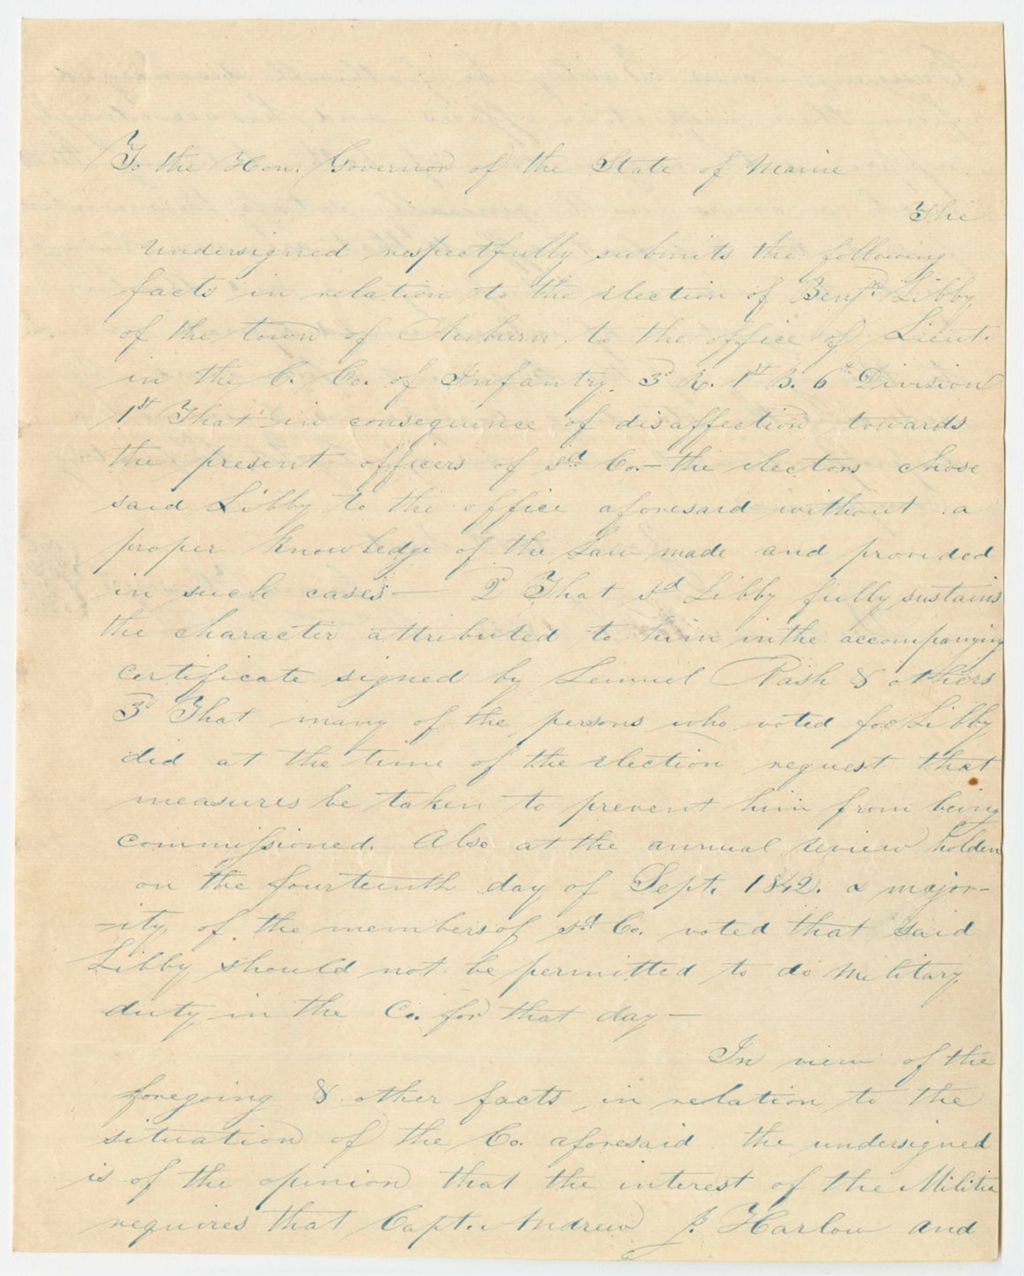 To the Hon. Governor of the State of Maine
The
undersigned respectfully submits the following
facts in relation to the election of Benj.n Libby
of the town of Auburn to the office of Lieut.
in the C. Co. of Infantry, 3d R. 1st B. 6th Division
1st That in consequence of disaffection towards
the present officers of sd Co.— the electors chose
said Libby to the office aforesaid without a
proper knowledge of the Law made and provided
in such cases— 2d That sd Libby fully sustains
the character attributed to him in the accompanying
certificate signed by Lemuel Nash & others
3d That many of the persons who voted for Libby
did at the time of the election request that
measures be taken to prevent him from being
commissioned. Also at the annual review holden
on the fourteenth day of Sept. 1842. a major-
-ity, of the members of sd Co. voted that said
Libby should not be permitted to do military
duty in the Co. for that day—
In view of the
foregoing & other facts, in relation to the
situation of the Co. aforesaid the undersigned
is of the opinion that the interest of the Militia
requires that Capt. Andrew J. Harlow and